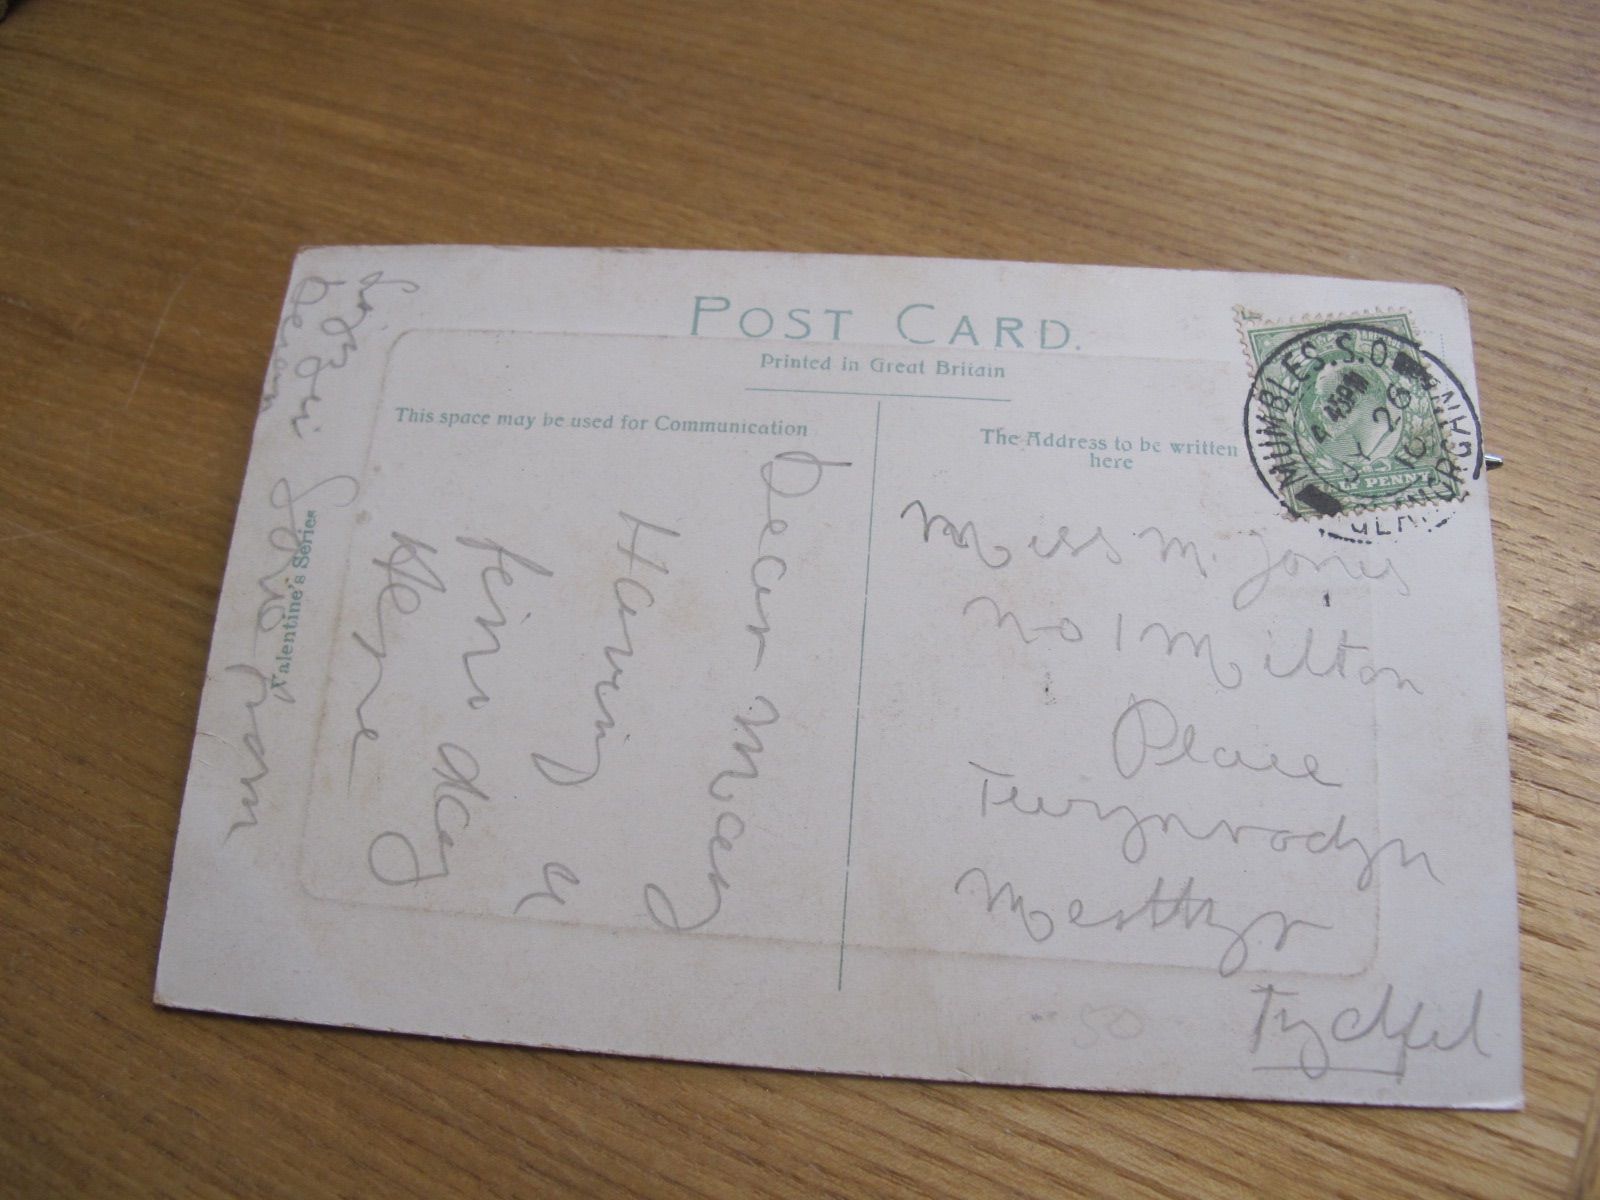 POST CARD.
Printed in Great Britain
This space may be used for Communication
The Address to be written
here
Valentine's Series
MUMBLES. S.O.
4 45PM
JY 26
10
HALF PENNY
Dear May
Having a
fine day
Here
from
Miss M. Jones
No 1 Milton
Place
Twynrodyn
Merthyr
Tydfil
50